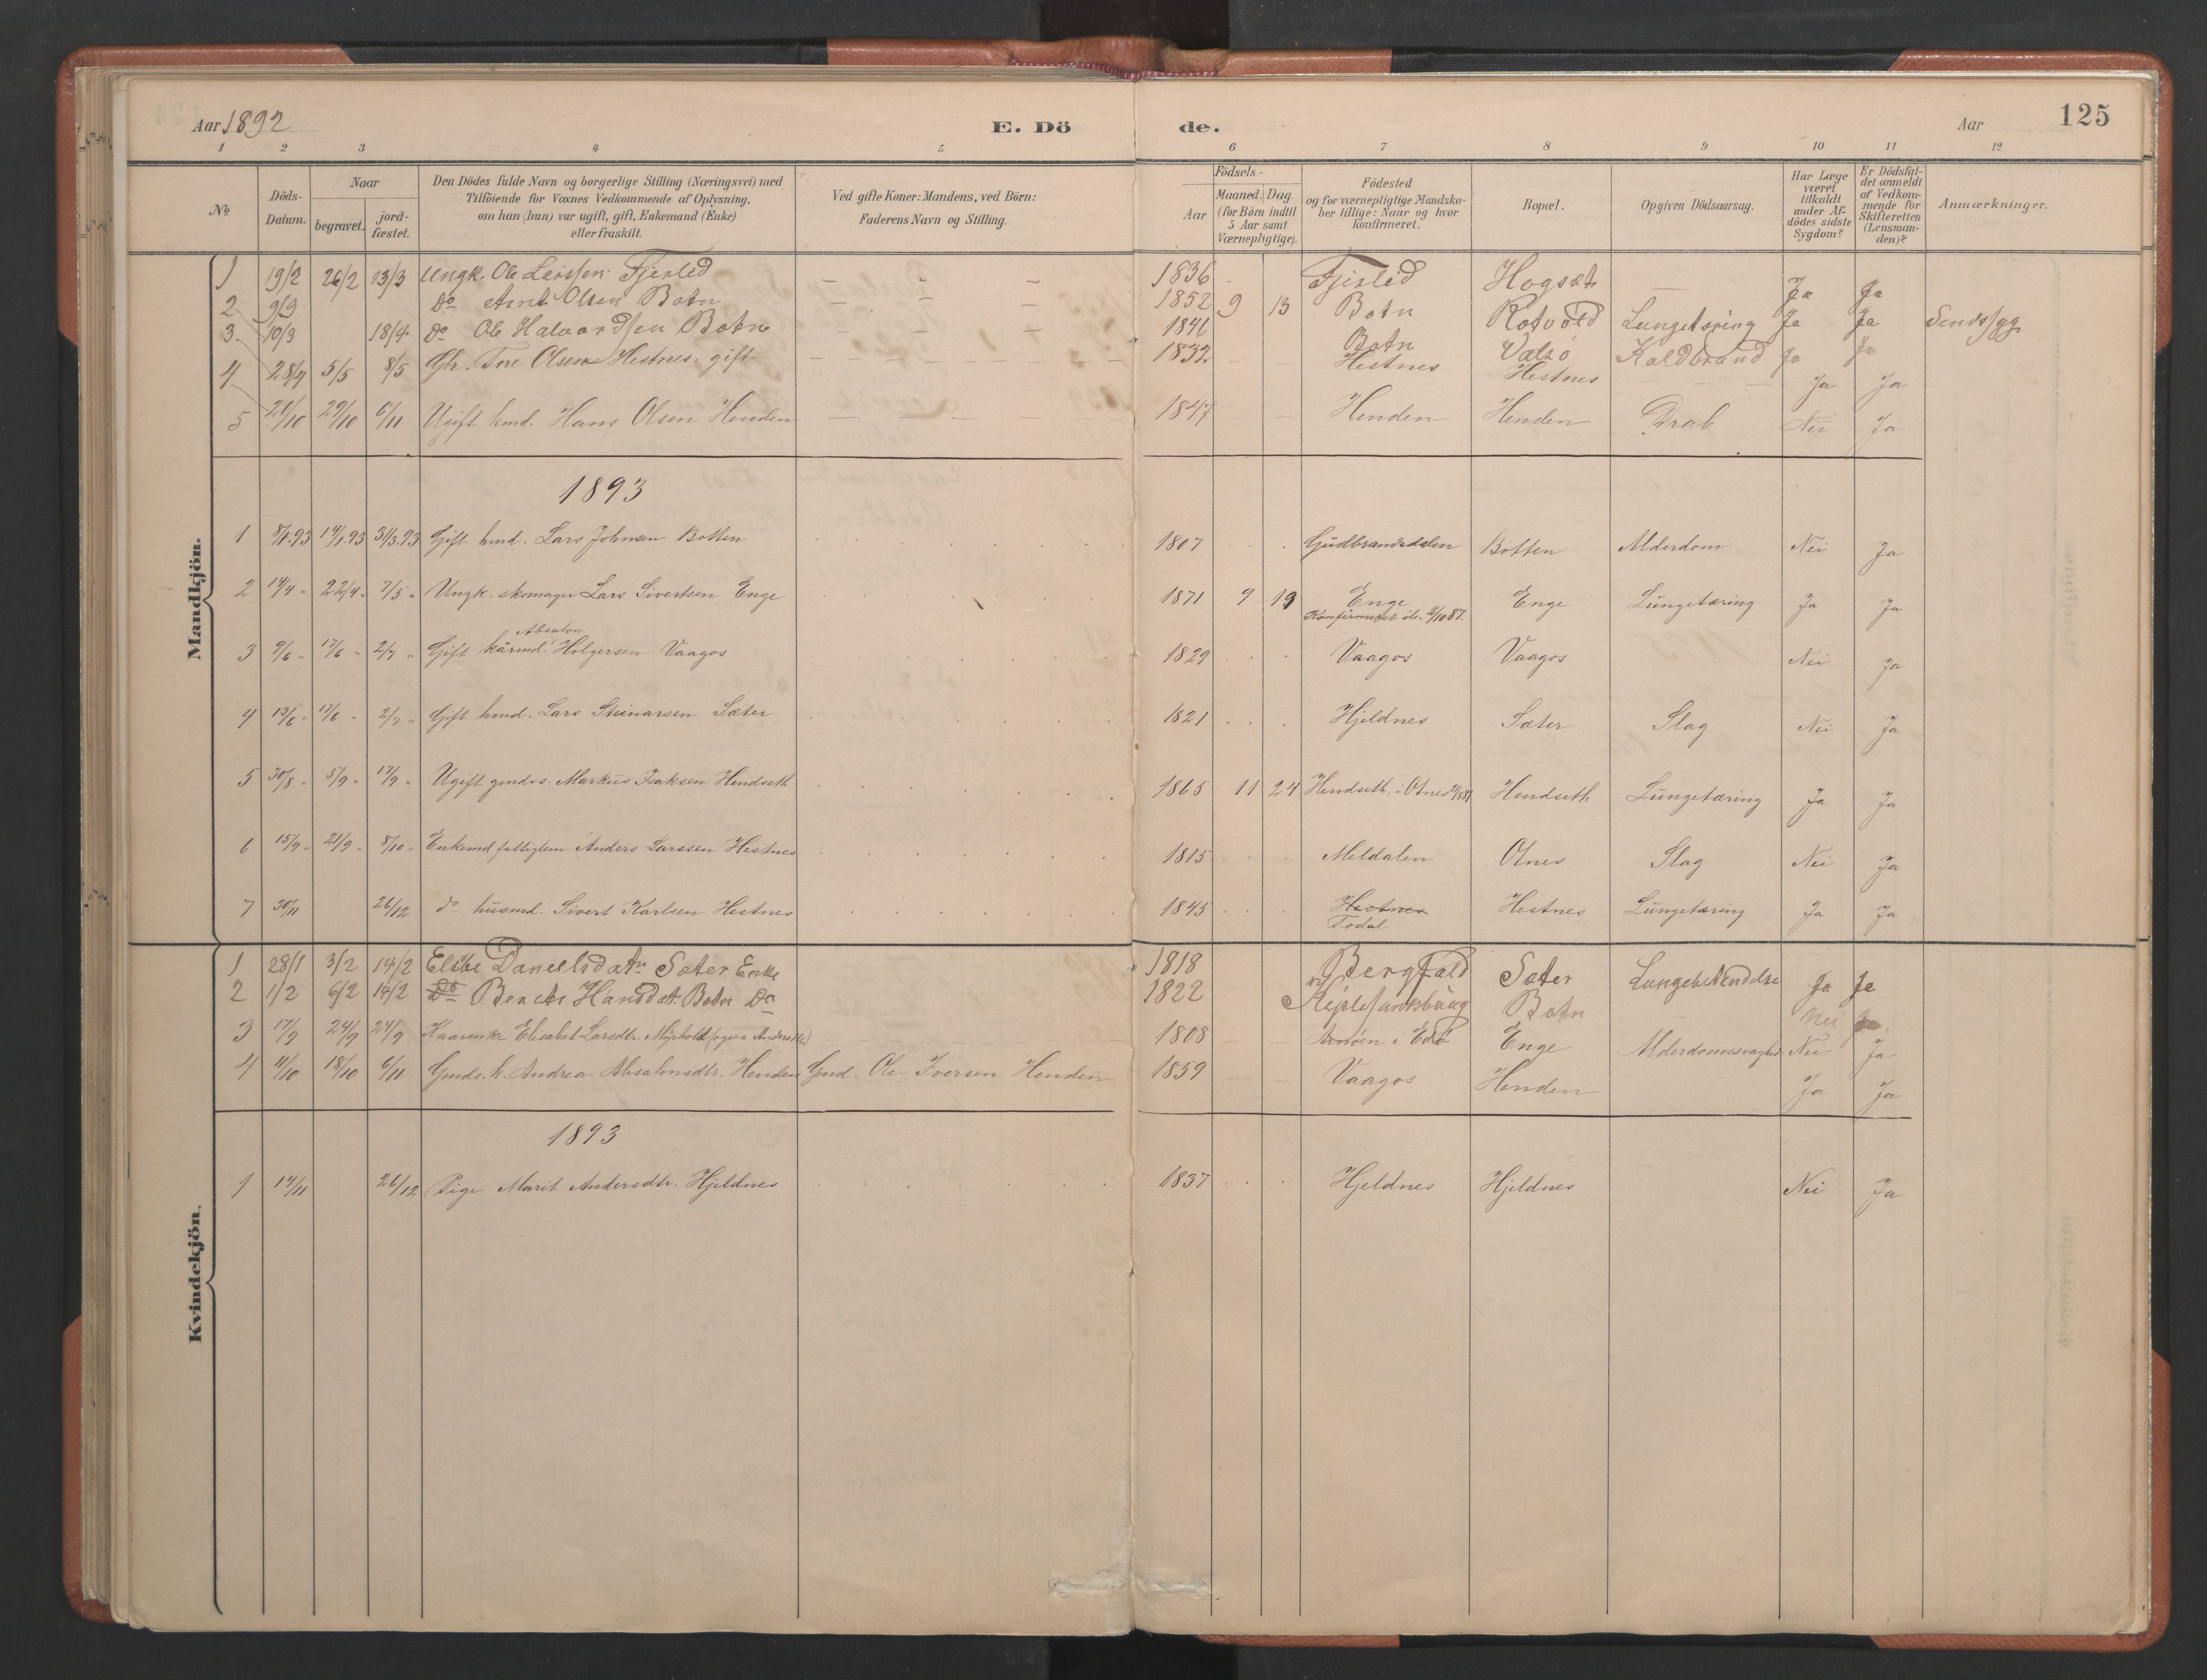 Aar 1892
E. Dö
de.
Aar
125
1 2 3 4 5 6 7 8 9 10 11 12
No
Döds-Datum.
Naar
begravet.
jord-fæstet.
Den Dödes fulde Navn og borgerlige Stilling (Næringsvei) med
Tilföiende for Voxnes Vedkommende af Oplysning,
om han (hun) var ugift, gift, Enkemand (Enke)
eller fraskilt.
Ved gifte Koner: Mandens, ved Börn:
Faderens Navn og Stilling.
Födsels-
Aar
Maaned. Dag.
(for Börn indtil
5 Aar samt
Værnepligtige).
Födested
og for værnepligtige Mandska-
ber tillige: Naar og hvor
konfirmeret.
Bopæl.
Opgiven Dödsaarsag.
Har Læge
været
tilkaldt
under Af-
dödes sidste
Sygdom?
Er Dödsfal-
det anmeldt
af Vedkom-
mende for
Skifteretten
(Lensman-
den)?
Anmærkninger.
Mandkjön.
1 19/2 26/2 13/3 Ungk. Ole Larssen Fjerlid 1836 Fjerlid Hogset Ja Ja
2 9/9 Do Olsen Botn 1852 9 13 Botn Rotvold Lungetæring Ja Ja
3 10/3 18/4 Do Ole Halvordsen Botn 1846 Botn Valsö Koldbrand Ja Ja
4 28/4 5/5 8/5 Tore Olsen Hestnes gift 1832 Hestnes Hestnes Ja Ja
5 29/10 6/11 Ugift hmd. Hans Olsen Henden 1847 Henden Henden Drab Nei Ja
1893
1 8/1.93 14/1.93 31/3.93 Gift hmd. Lars Johnsen Botten 1807 Gudbrandsdalen Botten Alderdom Nei Ja
2 14/4 22/4 7/5 Ungk. skomager Lars Sivertsen Enge 1871 9 19 Enge Enge Lungetæring Ja Ja
3 9/6 17/6 2/7 Gift kårmd. Absalon Holgersen Vaagos 1829 Vaagos Vaagos Nei Ja
4 13/6 17/6 2/7 Gift hmd. Lars Steinarsen Sæter 1821 Hjeldnes Sæter Slag Nei Ja
5 30/8 5/9 17/9 Ugift gmds. Markus Isaksen Hendseth 1865 11 24 Hendseth, i Otnes Hendseth Lungetæring Ja Ja
6 15/9 21/9 8/10 Enkemd fattiglem Anders Larssen Hestnes 1815 Meldalen Otnes Slag Nei Ja
7 30/11 26/12 do husmd. Sivert Karlsen Hestnes 1845 Hestnes Todal Hestnes Lungetæring Ja Ja
Kvindekjön.
1 28/1 3/2 14/2 Danielsdatr Sæter Enke 1818 Bergfald Sæter Lungebetændelse Ja Ja
2 1/2 6/2 14/2 Do Hansdat Botn Do 1822 Botn Nei Ja
3 17/9 24/9 24/9 Elisabet Larsdtr. 1808 i Edø Enge Alderdomssvaghed Nei Ja
4 11/10 18/10 6/11 Gmds.k. Andrea Absalonsdtr. Henden Gmd. Ole Iversen Henden 1859 Vaagos Henden Ja Ja
1893
1 14/11 26/12 Pige Marit Andersdtr. Hjeldnes 1837 Hjeldnes Hjeldnes Nei Ja